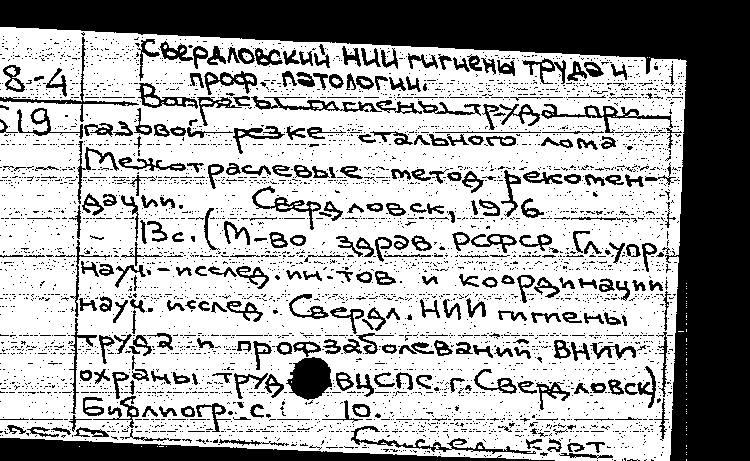 Свердловский НИИ гигиены труда и
8-4 проф. патологии.
Вопросы гигиены труда при
519 газовой резке стального лома.
Межотраслевые метод. рекомен-
дации. Свердловск, 1976
- 13с. (М-во здрав. РСФСР. Гл. упр.
науч.-исслед. ин-тов и координации
науч. исслед. Свердл. НИИ гигиены
труда и профзаболеваний. ВНИИ
охраны труд ВЦСПС. г. Свердловск).
Библиогр.: с. 10.
карт